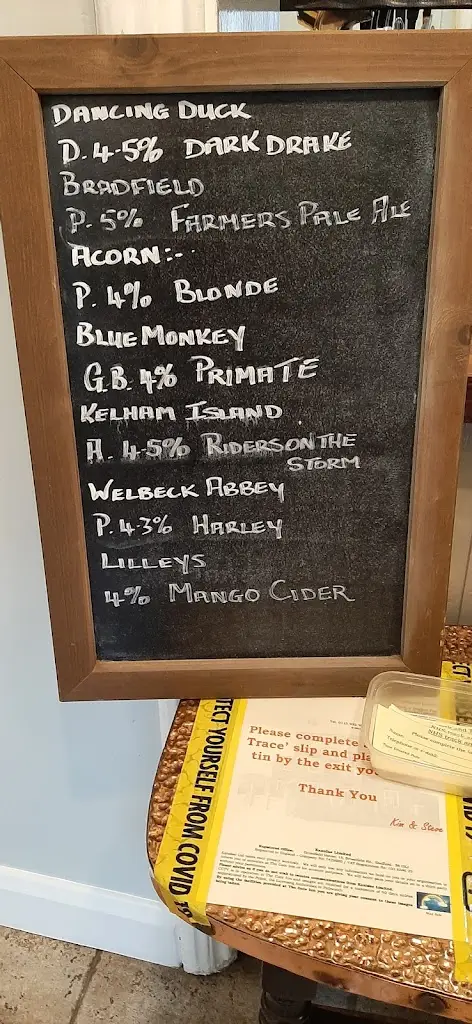 DANCING DUCK
D. 4-5% DARK DRAKE
BRADFIELD
P. 5% FARMERS PALE ALE
ACORN:-
P. 4% BLONDE
BLUE MONKEY
G.B. 4% PRIMATE
KELHAM ISLAND
A. 4-5% RIDERS ON THE
STORM
WELBECK ABBEY
P. 4-3% HARLEY
LILLEYS
4% MANGO CIDER
Please complete
Trace' slip and pla
tin by the exit yo
Thank You
Kim & Steve
TECT YOURSELF FROM COVID 19